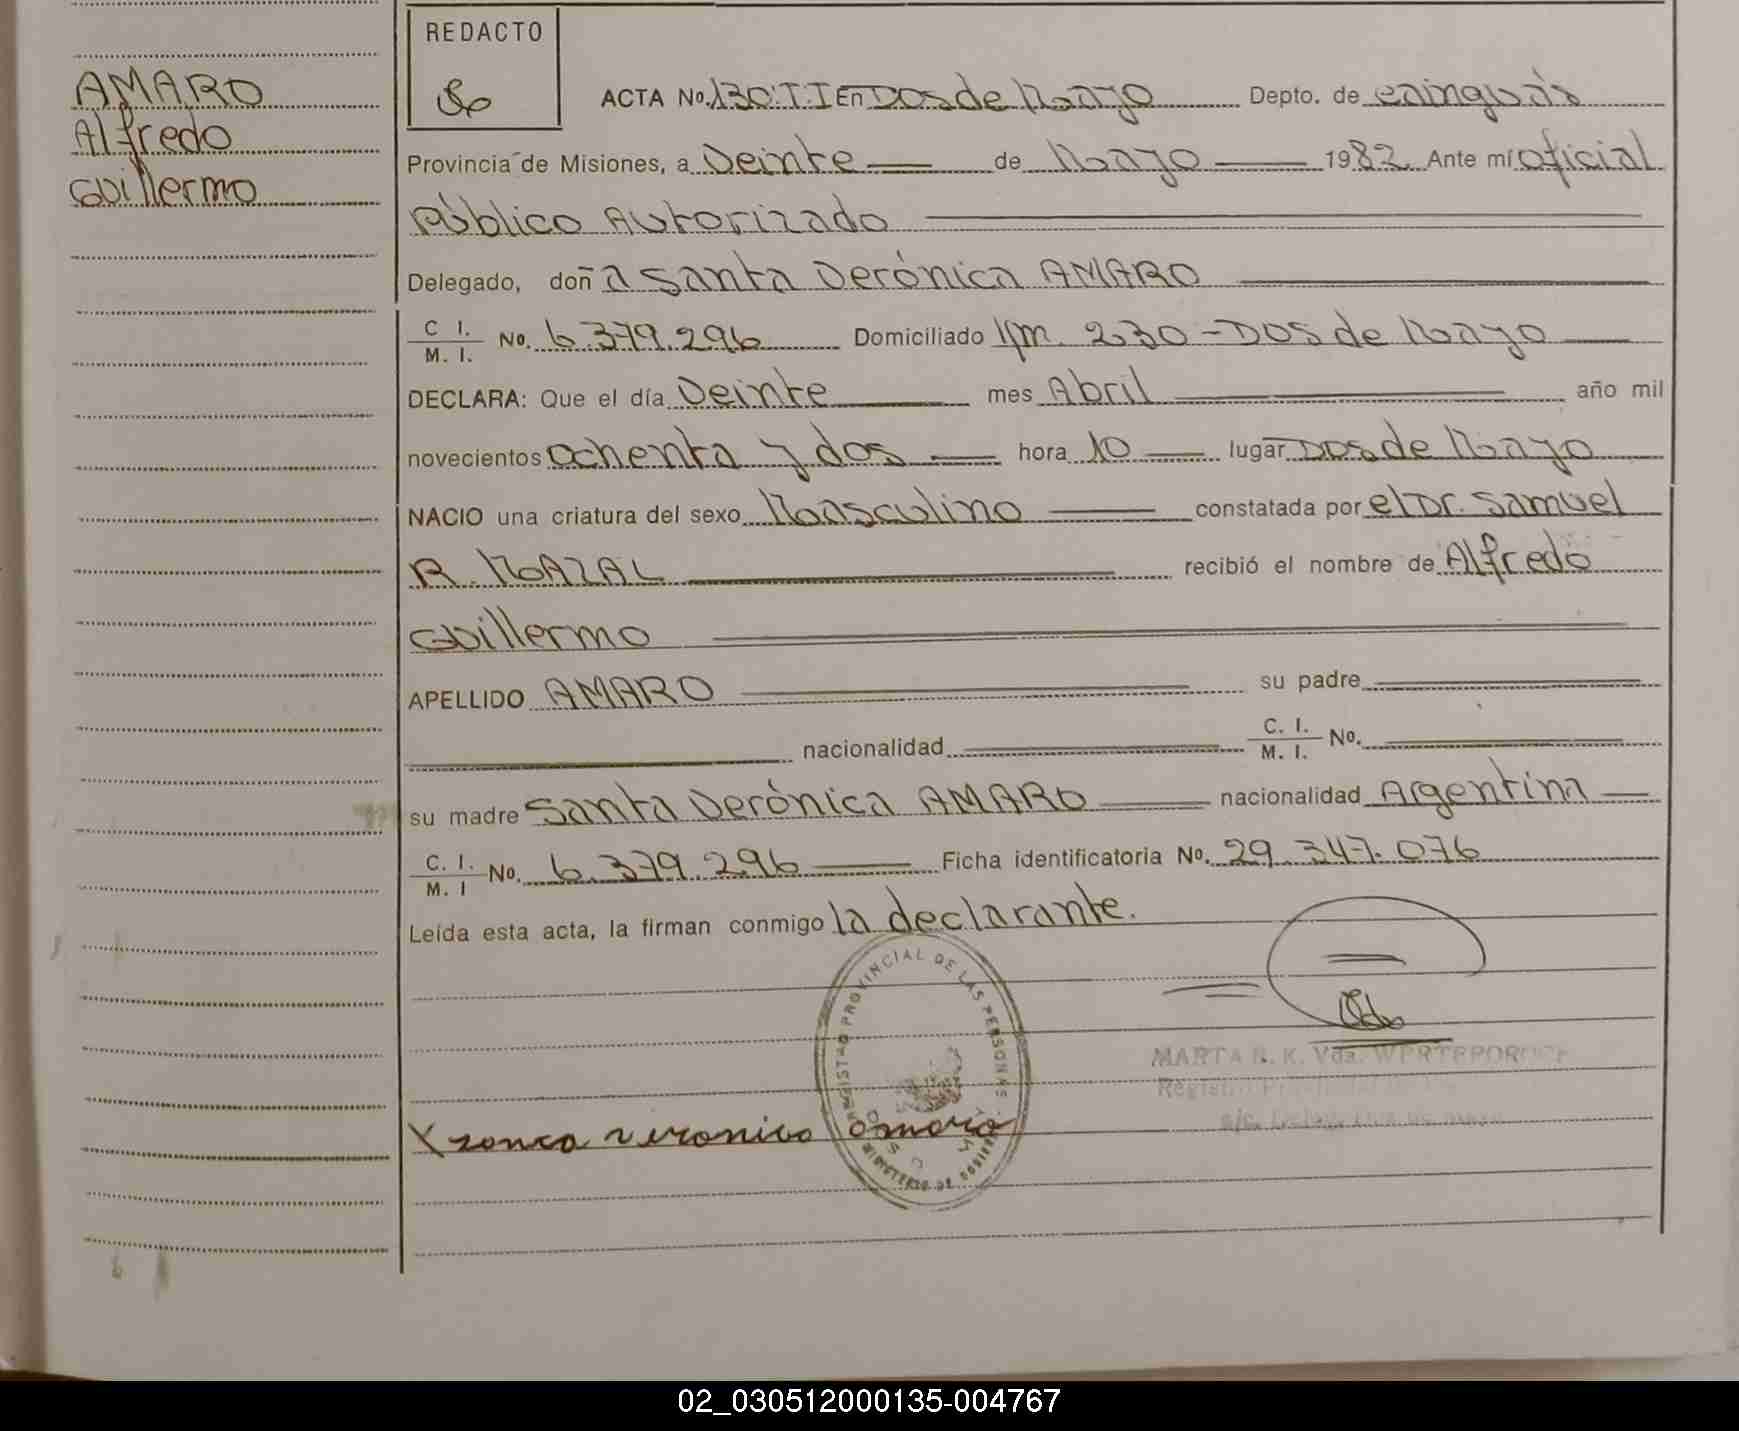 AMARO
Alfredo
Guillermo
REDACTO
ACTA No. 130.T.I En Dos de Mayo Depto. de Cainguás
Provincia de Misiones, a Veinte de Mayo 1982. Ante mí oficial
Público Autorizado
Delegado, doña Santa Verónica AMARO
C I.
M. I. No. 6.379.296 Domiciliado Km. 230 - Dos de Mayo
DECLARA: Que el día Veinte mes Abril año mil
novecientos ochenta y dos hora 10 lugar Dos de Mayo
NACIO una criatura del sexo Masculino constatada por el Dr. Samuel
R. MAZAL recibió el nombre de Alfredo
Guillermo
APELLIDO AMARO su padre
nacionalidad C. I.
M. I. No.
su madre Santa Verónica AMARO nacionalidad Argentina
C. I.
M. I No. 6.379.296 Ficha identificatoria No. 29.347.076
Leída esta acta, la firman conmigo la declarante.
REGISTRO PROVINCIAL DE LAS PERSONAS
MARTA R. K. Vda.
x santa veronica amaro
02_030512000135-004767